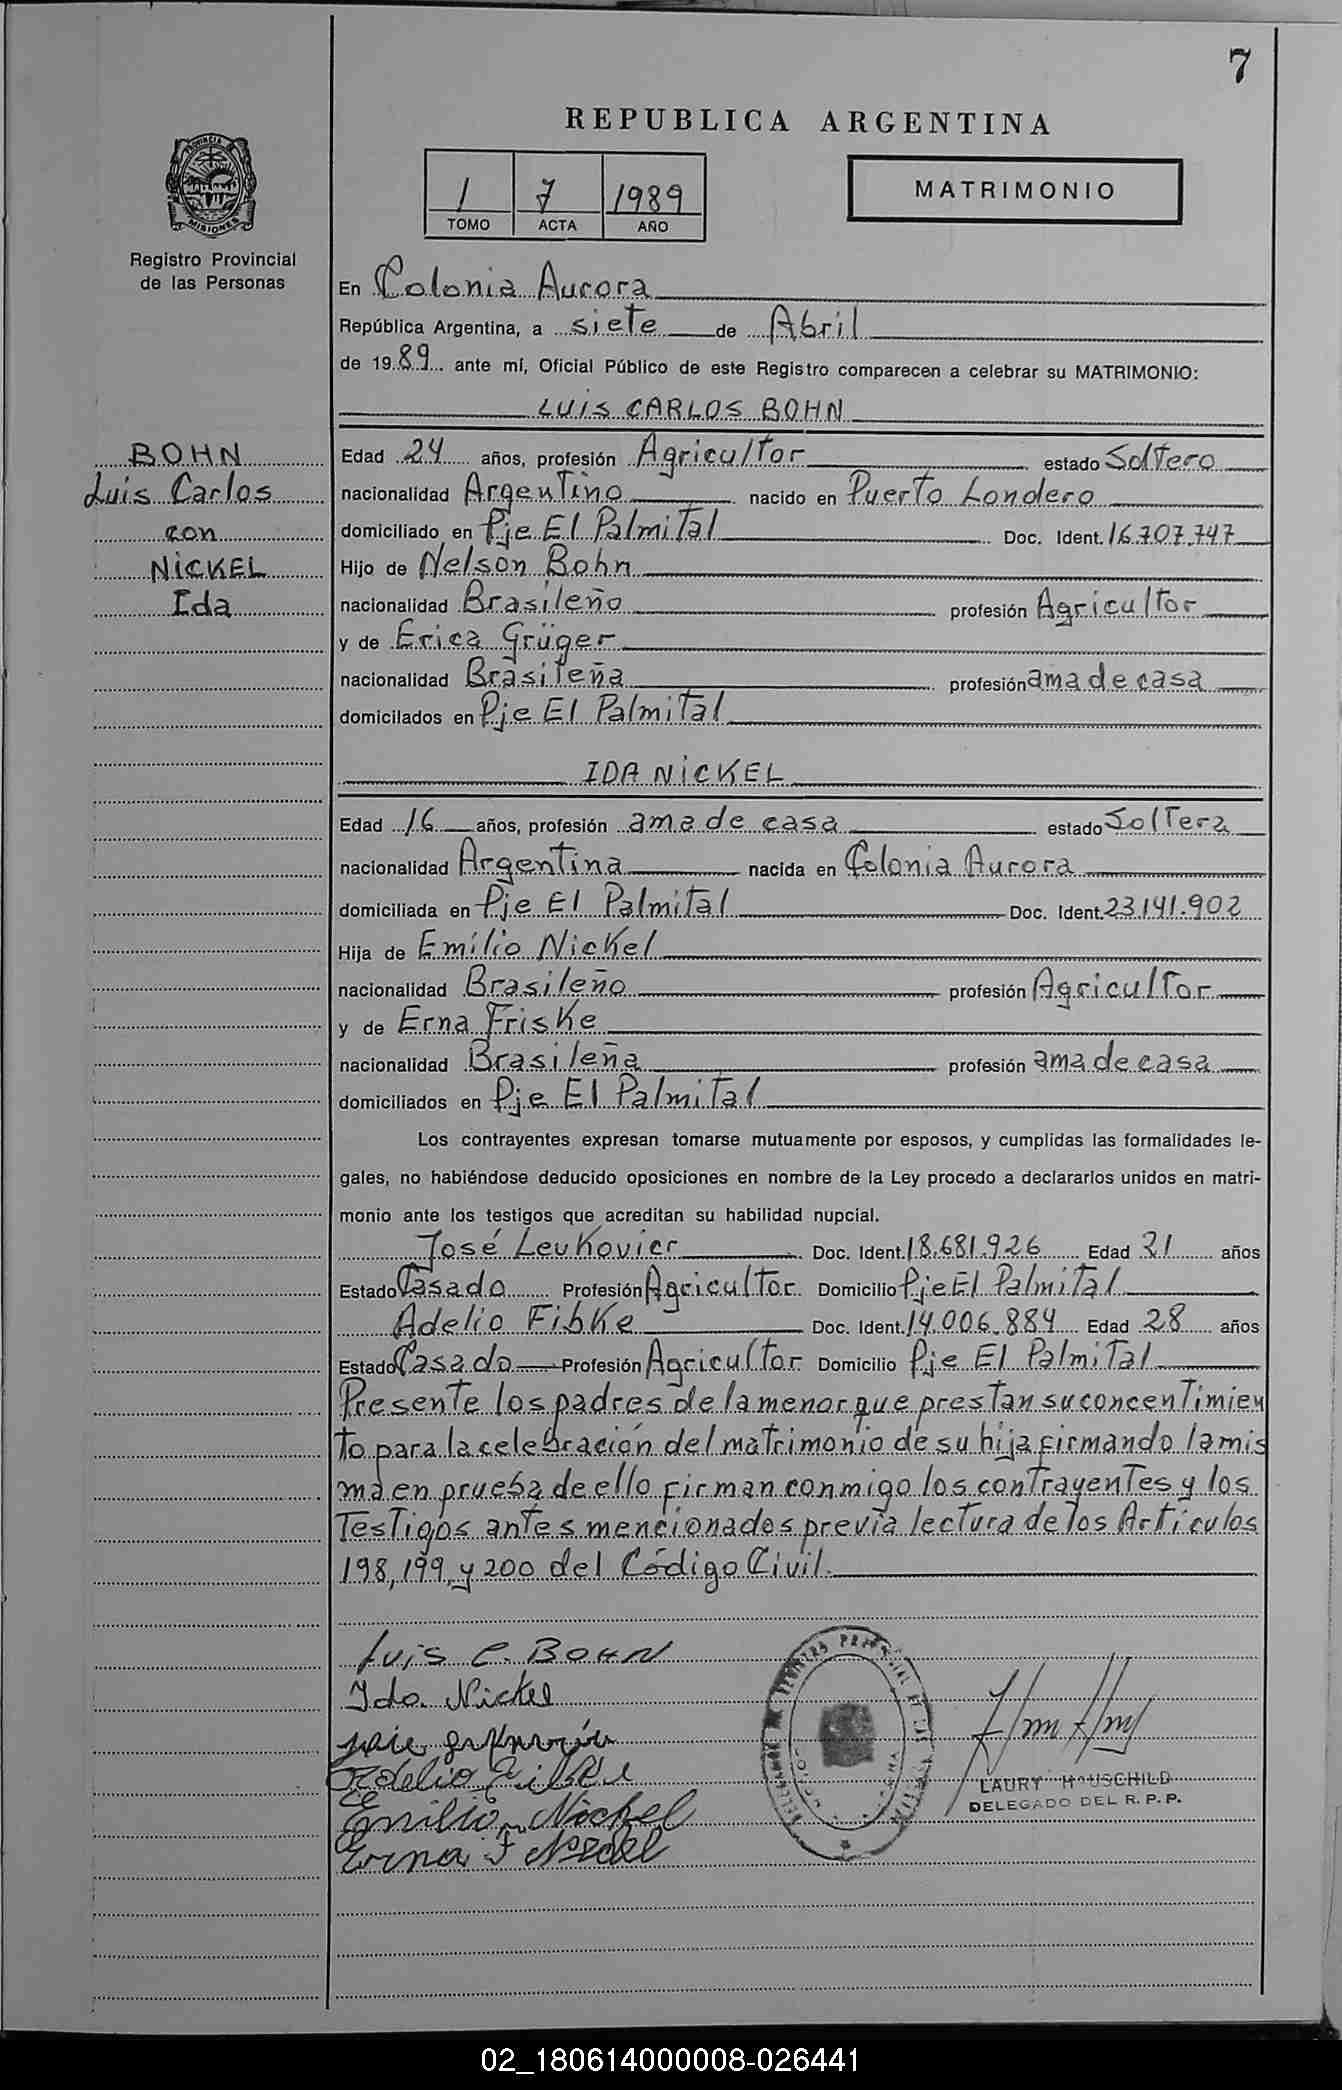 7
REPUBLICA ARGENTINA
PROVINCIA DE
MISIONES
Registro Provincial
de las Personas
1 7 1989
TOMO ACTA AÑO
MATRIMONIO
En Colonia Aurora
República Argentina, a siete de Abril
de 1989 ante mí, Oficial Público de este Registro comparecen a celebrar su MATRIMONIO:
LUIS CARLOS BOHN
BOHN
Luis Carlos
con
NICKEL
Ida
Edad 24 años, profesión Agricultor estado Soltero
nacionalidad Argentino nacido en Puerto Londero
domiciliado en Pje El Palmital Doc. Ident. 16.707.747
Hijo de Nelson Bohn
nacionalidad Brasileño profesión Agricultor
y de Erica Grüger
nacionalidad Brasileña profesión ama de casa
domicilados en Pje El Palmital
IDA NICKEL
Edad 16 años, profesión ama de casa estado Soltera
nacionalidad Argentina nacida en Colonia Aurora
domiciliada en Pje El Palmital Doc. Ident. 23.141.902
Hija de Emilio Nickel
nacionalidad Brasileño profesión Agricultor
y de Erna Friske
nacionalidad Brasileña profesión ama de casa
domiciliados en Pje El Palmital
Los contrayentes expresan tomarse mutuamente por esposos, y cumplidas las formalidades le-
gales, no habiéndose deducido oposiciones en nombre de la Ley procedo a declararlos unidos en matri-
monio ante los testigos que acreditan su habilidad nupcial.
José Leukovicr Doc. Ident. 18.681.926 Edad 21 años
Estado Casado Profesión Agricultor Domicilio Pje El Palmital
Adelio Fibke Doc. Ident. 14.006.884 Edad 28 años
Estado Casado Profesión Agricultor Domicilio Pje El Palmital
Presente los padres de la menor que prestan su concentimien
to para la celebración del matrimonio de su hija firmando la mis
ma en prueba de ello firman conmigo los contrayentes y los
Testigos antes mencionados previa lectura de los Articulos
198, 199, y 200 del Código Civil.
Luis C. BOHN
Ida Nickel
Adelio Fibke
Emilio Nickel
Erna F Nickel
LAURY HAUSCHILD
DELEGADO DEL R. P. P.
02_180614000008-026441